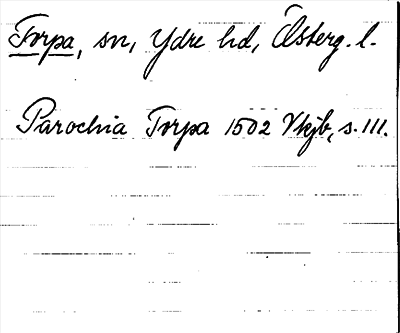 Torpa, sn, Ydre hd, Ölsberg. l.
Parochia Torpa 1502 Vkjb, s. 111.